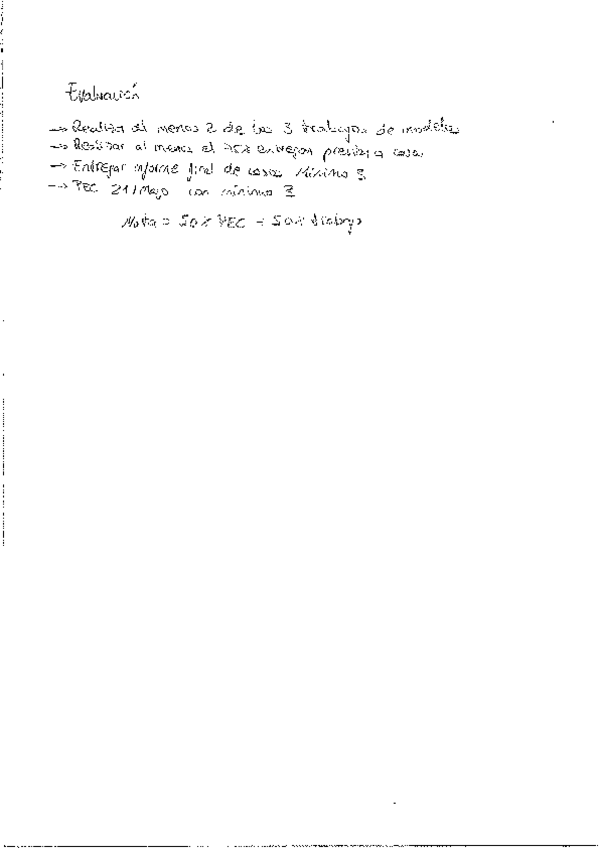 Evaluación
→ Realizar al menos 2 de los 3 trabajos de modelos
→ Realizar al menos el 75% entregas previas a casos
→ Entregar informe final de casos Mínimo 3
→ PEC 21/Mayo con mínimo 3
Nota = 50% PEC + 50% trabajo